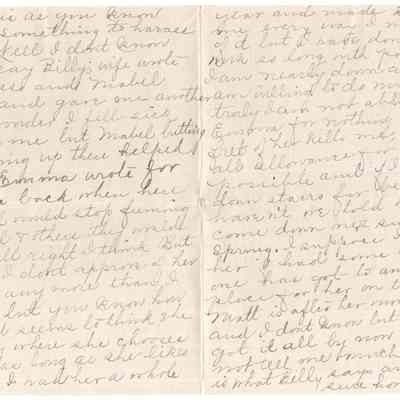 as you know
something to harass
tell I don't know
say Billy's wife wrote
and Mabel
and gave one another
wonder I feel sick
me but Mabel butting
up there helped
Emma wrote for
back when here
would stop fuming
& there they would
all right I think But
I don't approve of her
any more than I
but you know him
it seems to think she
where she chooses
as long as she likes
I ran her a whole
year and made
me every way I
of it but I says don
work so long with
I am nearly down a
am willing to do my
truly I am not abl
Emma for nothing
of her kills me
all allowance for
possible and
down stairs for the
haven't we told
come down next su
Spring. I suppose
her if had some
one has got to an
place for her on t
Matt is after her mon
and I don't know but
got it all by now
not tell me much
is what Billy says an
sure hon